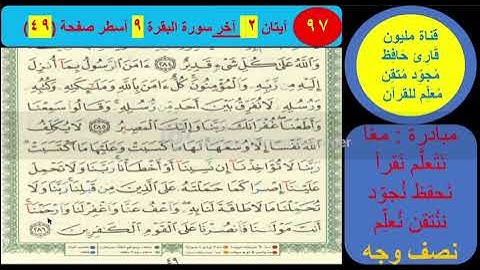 ٩٧ آيتان ٢ آخر سورة البقرة ٩ أسطر صفحة (٤٩)
وَاللَّهُ عَلَىٰ كُلِّ شَيْءٍ قَدِيرٌ ٢٨٤ ءَامَنَ الرَّسُولُ بِمَا أُنزِلَ
إِلَيْهِ مِن رَّبِّهِ وَالْمُؤْمِنُونَ كُلٌّ ءَامَنَ بِاللَّهِ وَمَلَٰئِكَتِهِ وَكُتُبِهِ
وَرُسُلِهِ لَا نُفَرِّقُ بَيْنَ أَحَدٍ مِّن رُّسُلِهِ وَقَالُوا سَمِعْنَا
وَأَطَعْنَا غُفْرَانَكَ رَبَّنَا وَإِلَيْكَ الْمَصِيرُ ٢٨٥ لَا يُكَلِّفُ
اللَّهُ نَفْسًا إِلَّا وُسْعَهَا لَهَا مَا كَسَبَتْ وَعَلَيْهَا مَا اكْتَسَبَتْ
رَبَّنَا لَا تُؤَاخِذْنَا إِن نَّسِينَا أَوْ أَخْطَأْنَا رَبَّنَا وَلَا تَحْمِلْ
عَلَيْنَا إِصْرًا كَمَا حَمَلْتَهُ عَلَى الَّذِينَ مِن قَبْلِنَا رَبَّنَا
وَلَا تُحَمِّلْنَا مَا لَا طَاقَةَ لَنَا بِهِ وَاعْفُ عَنَّا وَاغْفِرْ لَنَا وَارْحَمْنَا
أَنتَ مَوْلَانَا فَانصُرْنَا عَلَى الْقَوْمِ الْكَافِرِينَ ٢٨٦
٤٩
قناة مليون
قارئ حافظ
مُجوّد مُتقن
مُعلّم للقرآن
مبادرة : معًا
نَتَعلّم نَقرأ
نَحفظ نُجوّد
نُتقن نُعلّم
نصف وجه